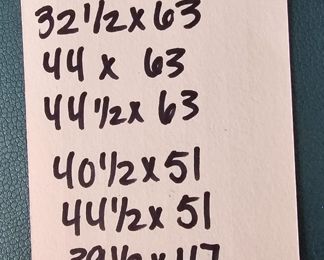 32 1/2 x 63
44 x 63
44 1/2 x 63
40 1/2 x 51
44 1/2 x 51
39 1/2 x 47